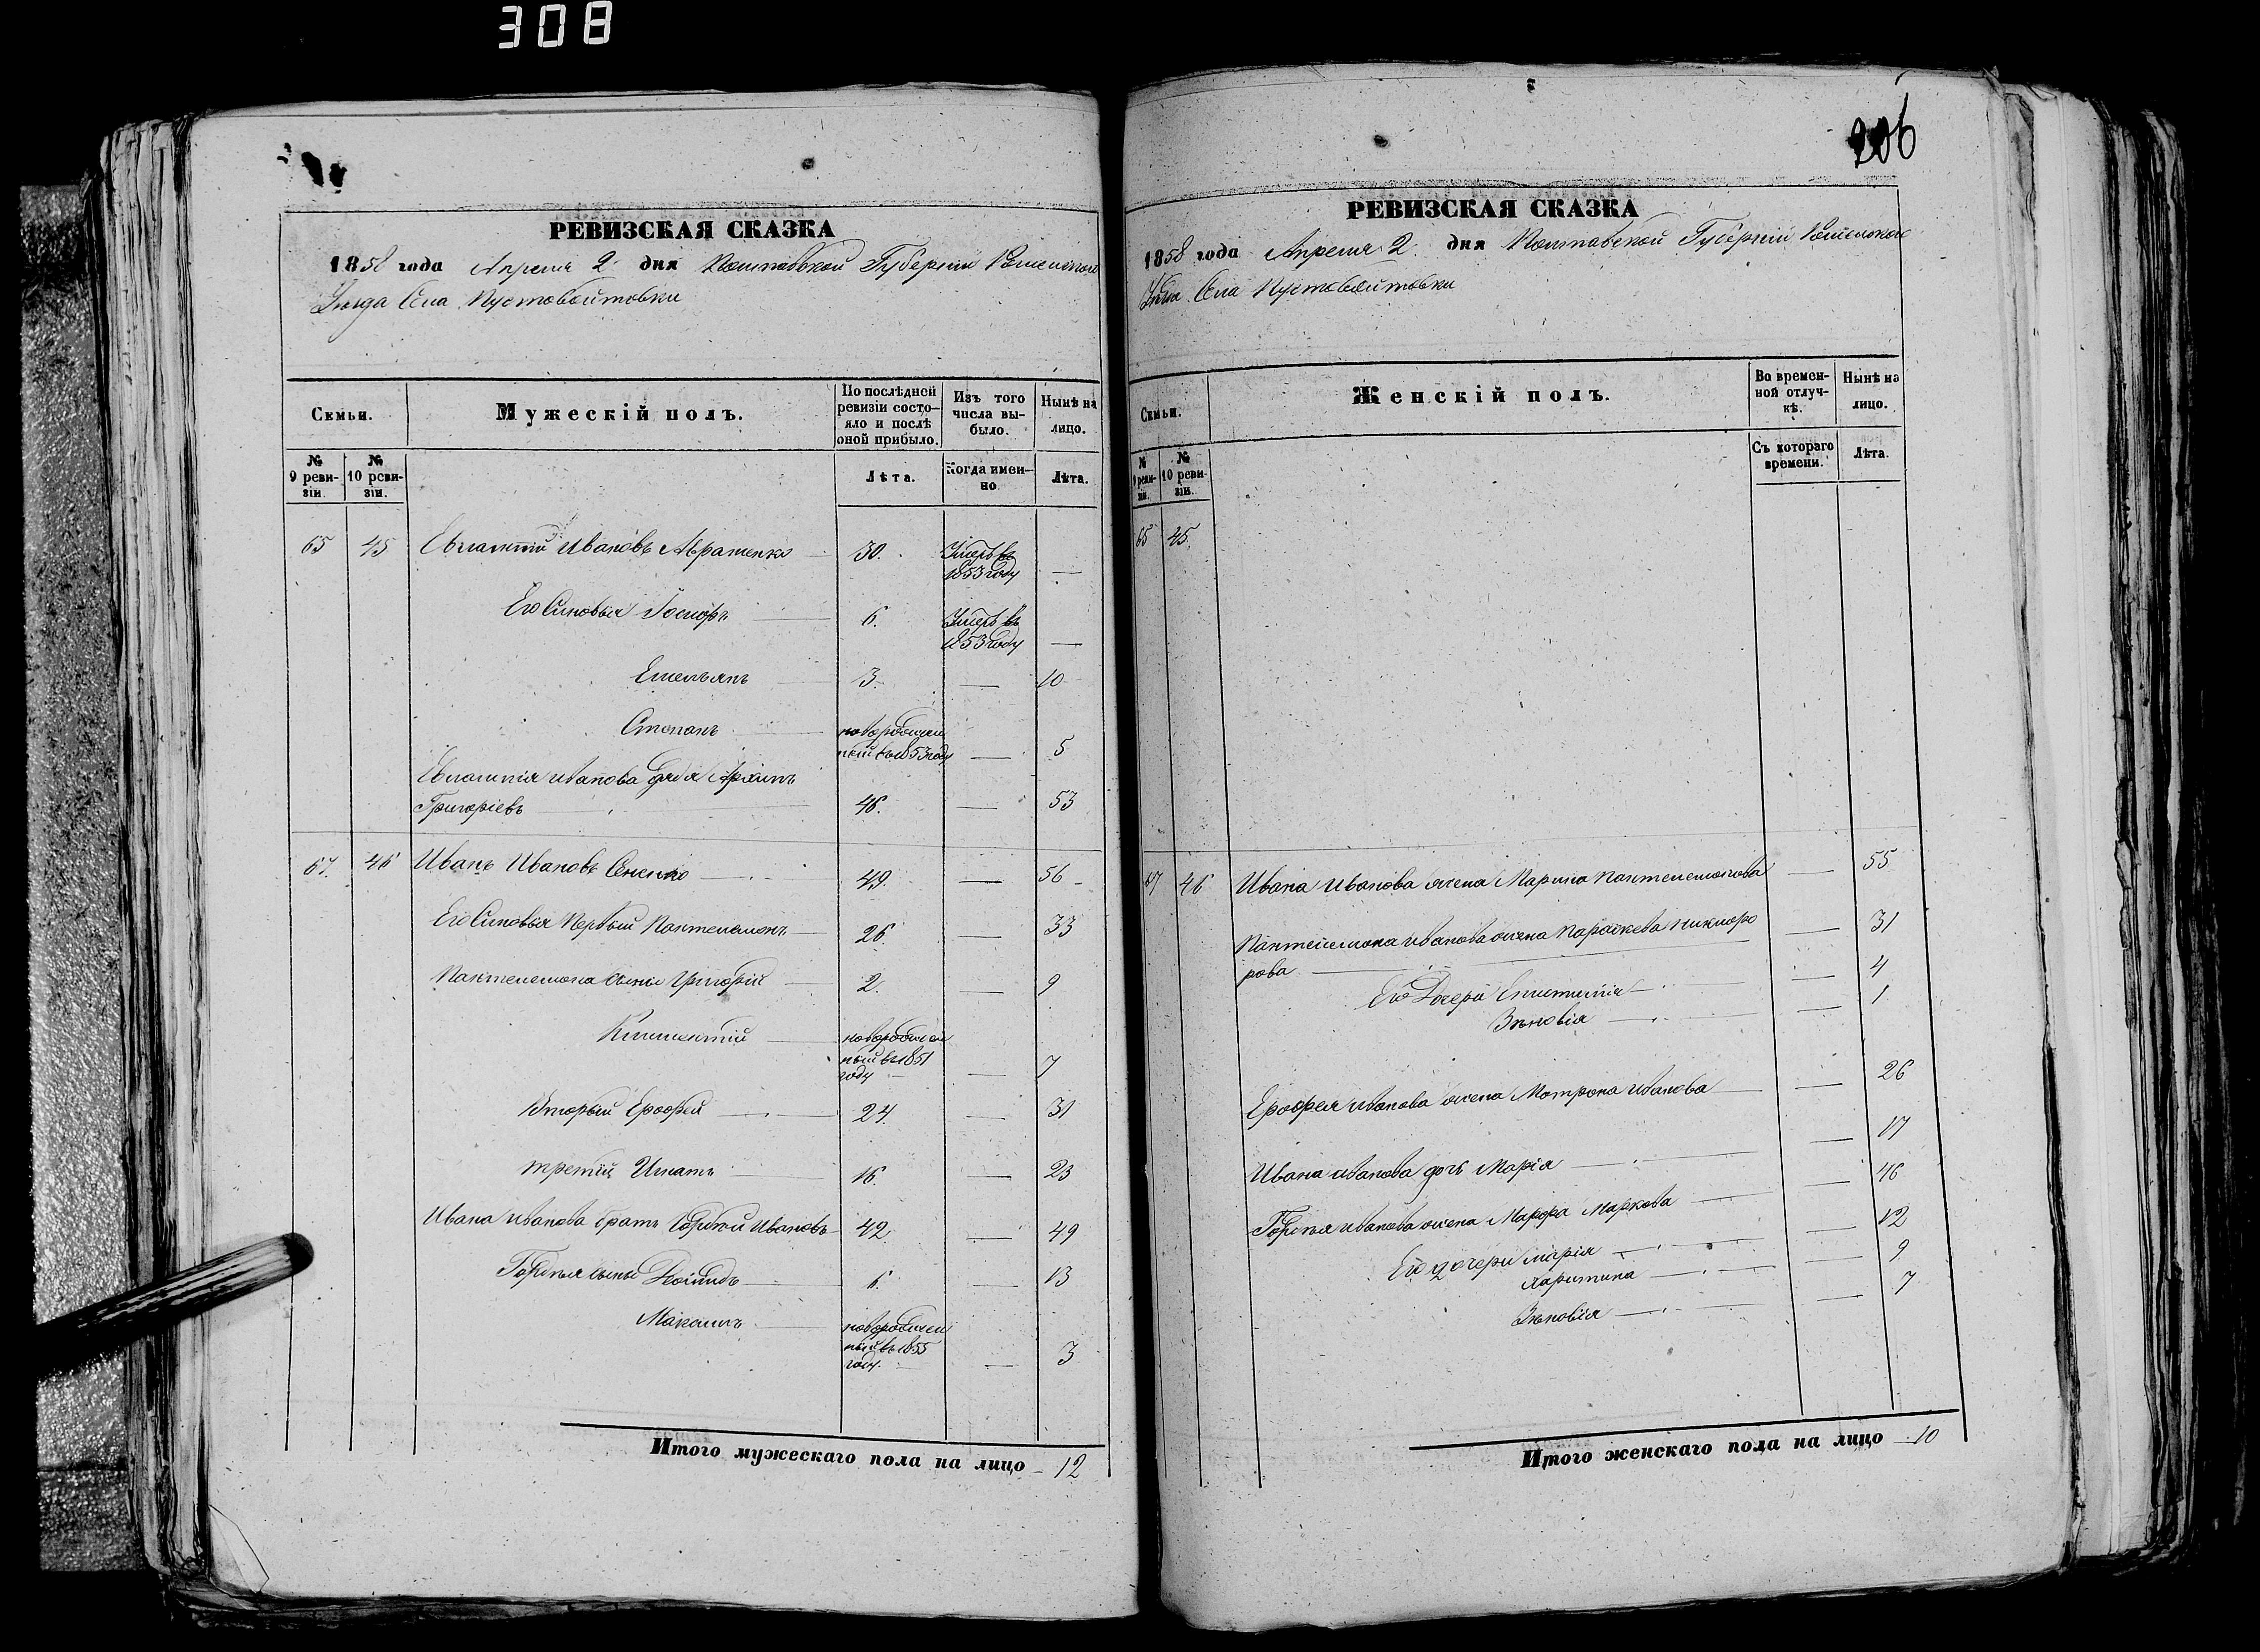 308
РЕВИЗСКАЯ СКАЗКА
1858 года Апреля 2 дня Полтавской Губерніи Роменскаго
Уезда Села Пустовойтовки
Семьи.
Мужескій полъ.
По послѣдней ревизіи состо-яло и послѣ оной прибыло.
Изъ того числа вы-было.
Нынѣ на лицо.
№ 9 реви-зіи.
№ 10 реви-зіи.
Лѣта.
Когда имен-но
Лѣта.
65 45 Евлампій Ивановъ 30. Умеръ въ
1853 году —
Его Сыновья 6. Умеръ въ
1853 году —
Емельянъ 3. — 10
Степанъ новорожден
ный въ 1853 году — 5
Евлампія Иванова дядя Архипъ
Григоріевъ 46. — 53
67. 46 Иванъ Ивановъ 49. — 56
Его Сыновья Первый Пантелемонъ 26. — 33
Пантелемона сыны Григорій 2. — 9
Климентий новорожден
ный въ 1851
году — 7
Вторый Ерофей 24. — 31
третій Игнатъ 16. — 23
Ивана Иванова братъ Ивановъ 42 — 49
сыны 6. — 13
Максимъ новорожден
ный въ 1855
году. — 3
Итого мужескаго пола на лицо 12
206
РЕВИЗСКАЯ СКАЗКА
1858 года Апреля 2 дня Полтавской Губерніи Роменскаго
Уезда Села Пустовойтовки
Семьи.
Женскій полъ.
Во времен-ной отлуч-кѣ.
Нынѣ на лицо.
№ 9 реви-зіи.
№ 10 реви-зіи.
Съ котораго времени.
Лѣта.
65 45.
67 46 Ивана Иванова жена Марина Пантелемонова — 55
Пантелемона Иванова жена Параскева Никифо
рова — 31
Его Дочери — 4
Зѣновія — 1
Ерофея Иванова жена Мотрона Иванова — 26
Ивана Иванова дочь Марія — 17
Иванова жена Марфа Маркова — 46
Его дочери Марія — 12
Харитина — 9
Зѣновія — 7
Итого женскаго пола на лицо 10